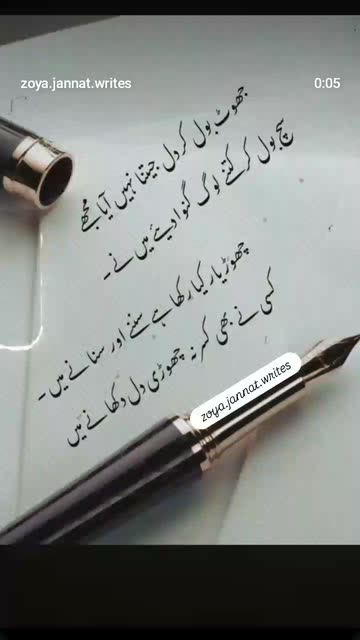 zoya.jannat.writes
0:05
جھوٹ بول کر دل جیتنا نہیں آیا مجھے
سچ بول کر کتنے لوگ گنوا دیئے میں نے۔
چھوڑ یار کیا رکھا ہے سننے اور سنانے میں۔
کسی نے بھی کسر نہ چھوڑی دل دکھانے میں
zoya.jannat.writes